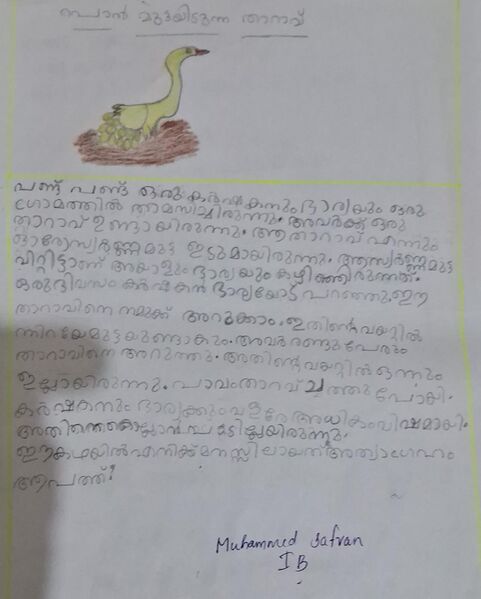 പൊൻ മുട്ടയിടുന്ന താറാവ്
പണ്ട് പണ്ട് ഒരു കർഷകനും ഭാര്യയും ഒരു
ഗ്രാമത്തിൽ താമസിച്ചിരുന്നു. അവർക്ക് ഒരു
താറാവ് ഉണ്ടായിരുന്നു. ആ താറാവ് എന്നും
ഓരോ സ്വർണ്ണമുട്ട ഇടുമായിരുന്നു. ആ സ്വർണ്ണമുട്ട
വിറ്റിട്ടാണ് അയാളും ഭാര്യയും കഴിഞ്ഞിരുന്നത്.
ഒരു ദിവസം കർഷകൻ ഭാര്യയോട് പറഞ്ഞു. ഈ
താറാവിനെ നമുക്ക് അറുക്കാം. ഇതിന്റെ വയറ്റിൽ
നിറയേ മുട്ടയുണ്ടാകും. അവർ രണ്ടുപേരും
താറാവിനെ അറുത്തു. അതിന്റെ വയറ്റിൽ ഒന്നും
ഇല്ലായിരുന്നു. പാവം താറാവ് ചത്തു പോയി.
കർഷകനും ഭാര്യക്കും വളരേ അധികം വിഷമായി.
അതിനെ
ഈ കഥയിൽ എനിക്ക് മനസ്സിലായത് അത്യാഗ്രഹം
ആപത്ത്!
Muhammed Safvan
I B